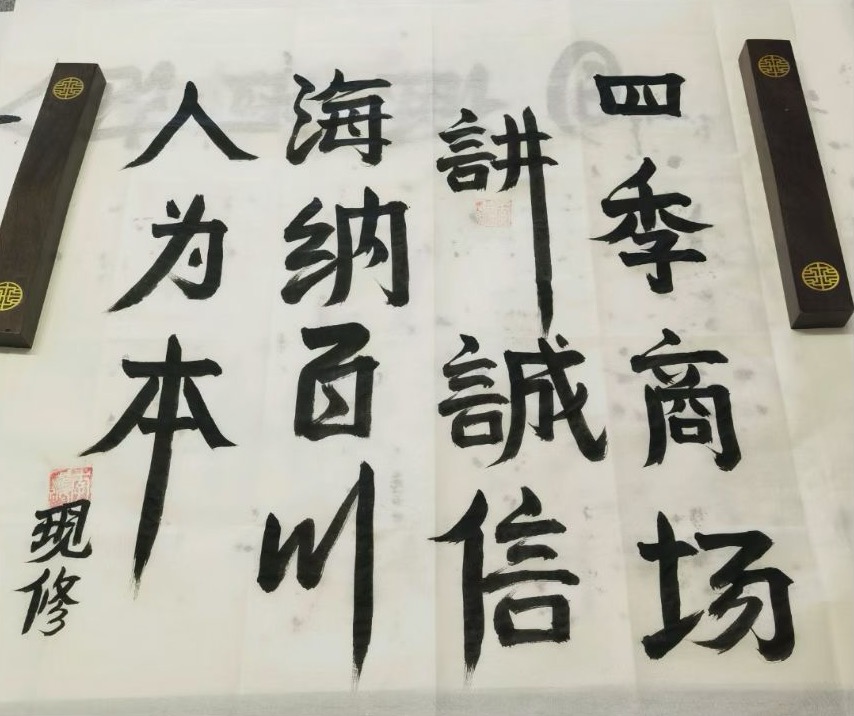 四季商场
讲誠信
海纳百川
人为本
现修